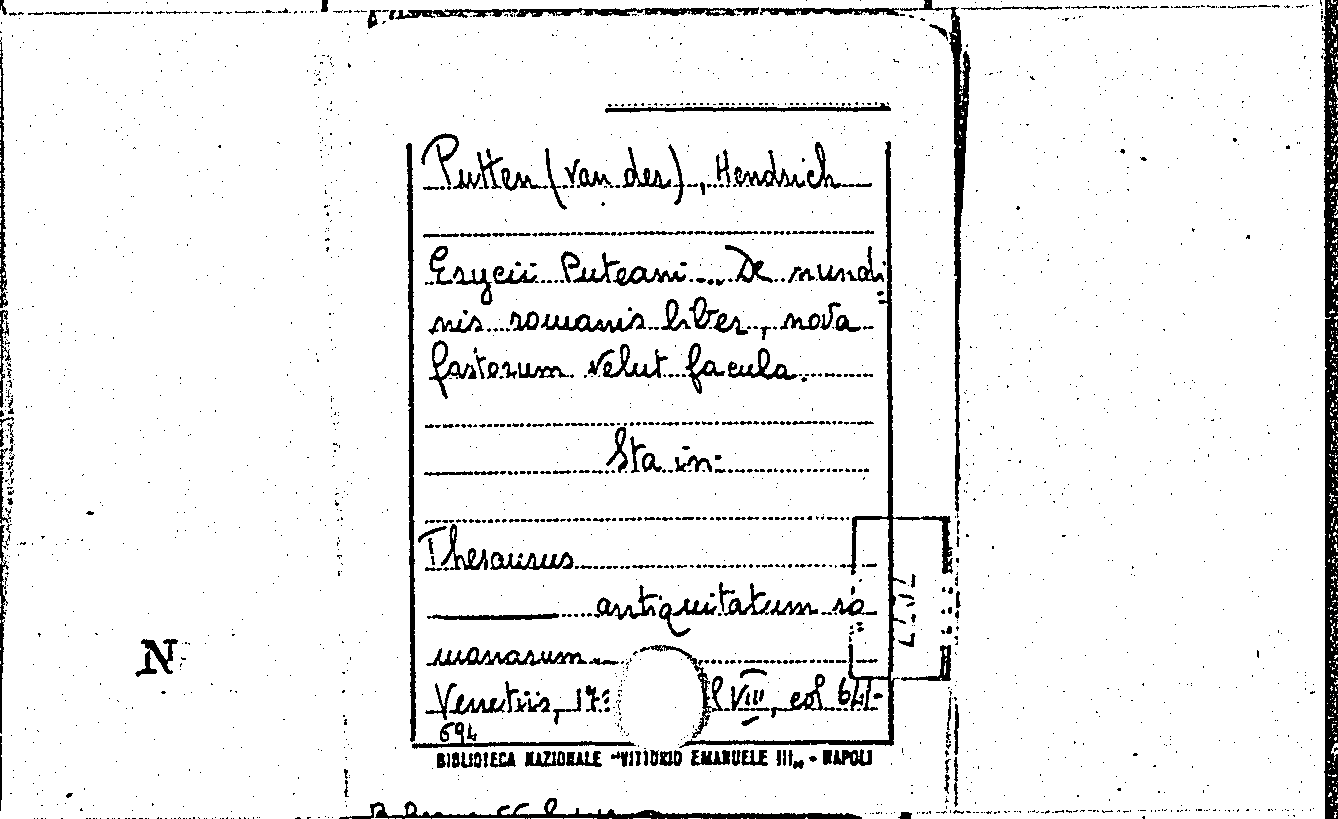 Putten (van der), Hendrich
Erycii Puteani ... De nundi=
nis romanis liber, nova
fastorum velut facula.
Sta in:
Thesaurus
antiquitatum ro=
manarum...
Venetiis, 173 VIII, col 641-
694
BIBLIOTECA NAZIONALE "VITTORIO EMANUELE III„ - NAPOLI
N